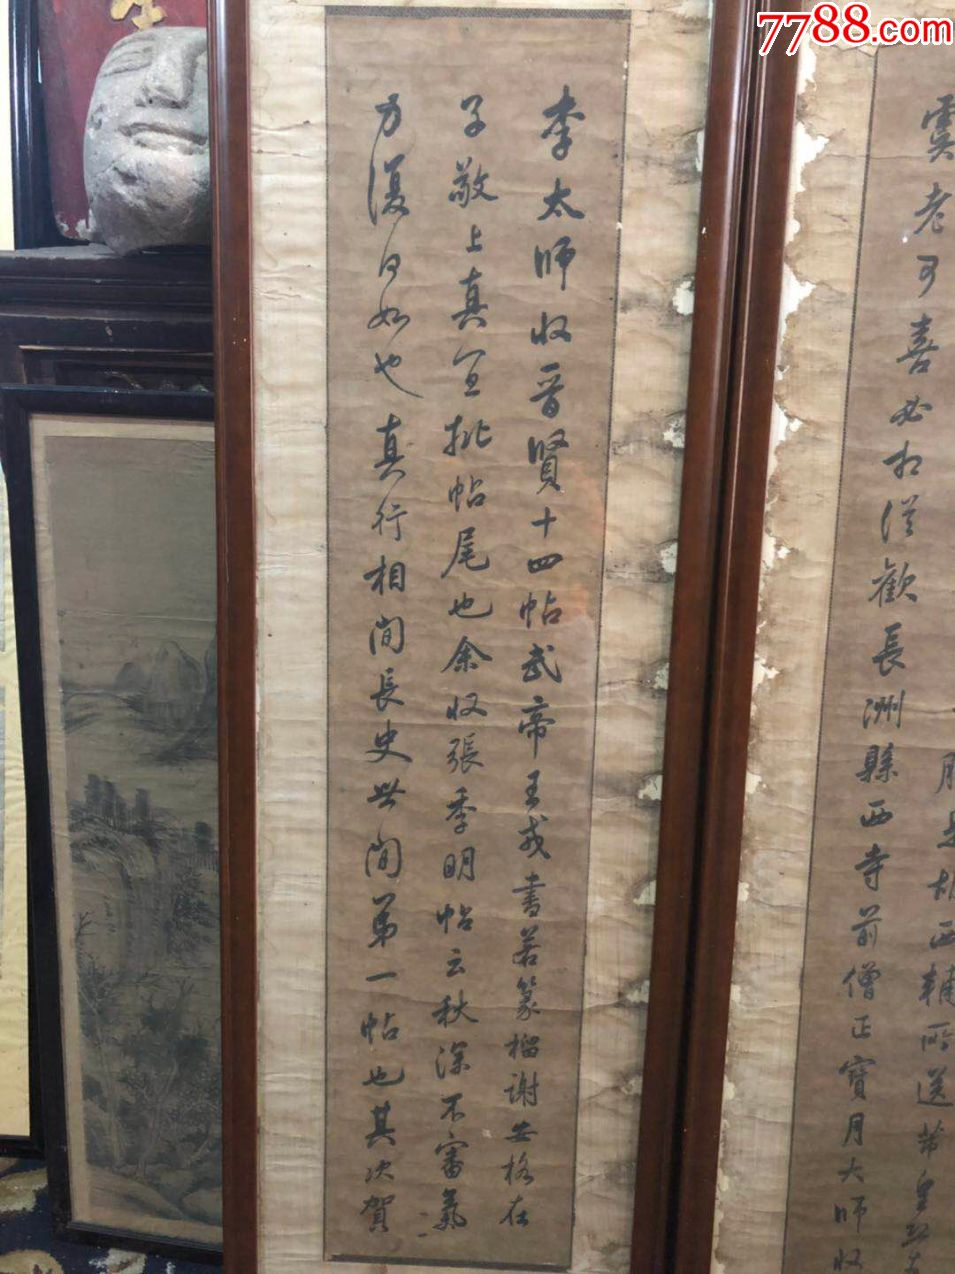 7788.com
西輔所送
虞老可喜必相從歡長洲縣西寺前僧正寶月大師收
李太師收晉賢十四帖武帝王戎書若篆榴謝安格在
子敬上真宜批帖尾也余收張季明帖云秋深不審氣
力復何如也真行相間長史世間第一帖也其次賀